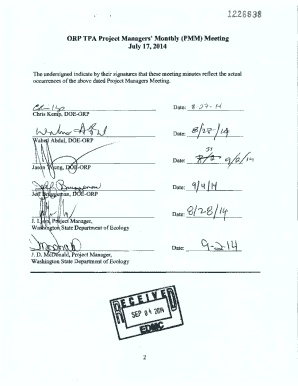 1226838
ORP TPA Project Managers' Monthly (PMM) Meeting
July 17, 2014
The undersigned indicate by their signatures that these meeting minutes reflect the actual
occurrences of the above dated Project Managers Meeting.
Date: 8-27-14
Chris Kemp, DOE-ORP
Date: 8/28/14
Wahed Abdul, DOE-ORP
Date: 9/2/14
DOE-ORP
Jeff Bruggeman Date: 9/4/14
DOE-ORP
Date: 8/28/14
J. Project Manager,
Washington State Department of Ecology
Date: 9-2-14
J. D. McDonald, Project Manager,
Washington State Department of Ecology
RECEIVED
SEP 04 2014
EDMC
2